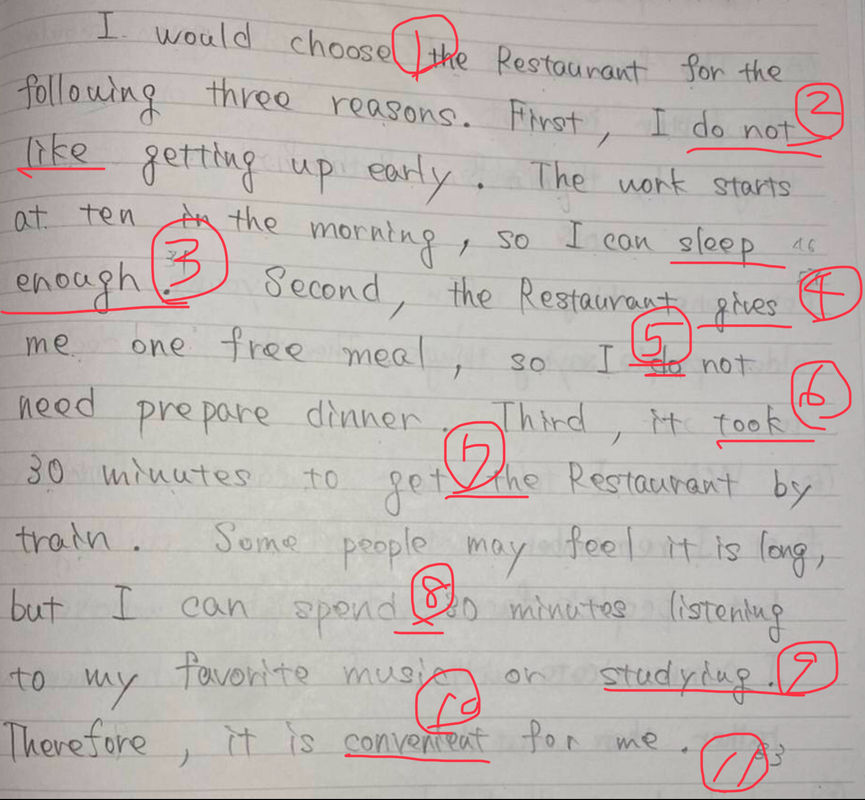 I would choose 1 the Restaurant for the
following three reasons. First, I do not 2
like getting up early. The work starts
at ten in the morning, so I can sleep
enough. 3 Second, the Restaurant gives 4
me one free meal, so I 5 do not
need prepare dinner. Third, it took 6
30 minutes to get 7 the Restaurant by
train. Some people may feel it is long,
but I can spend 8 30 minutes listening
to my favorite music or studying. 9
Therefore, it is convenient 10 for me. 11